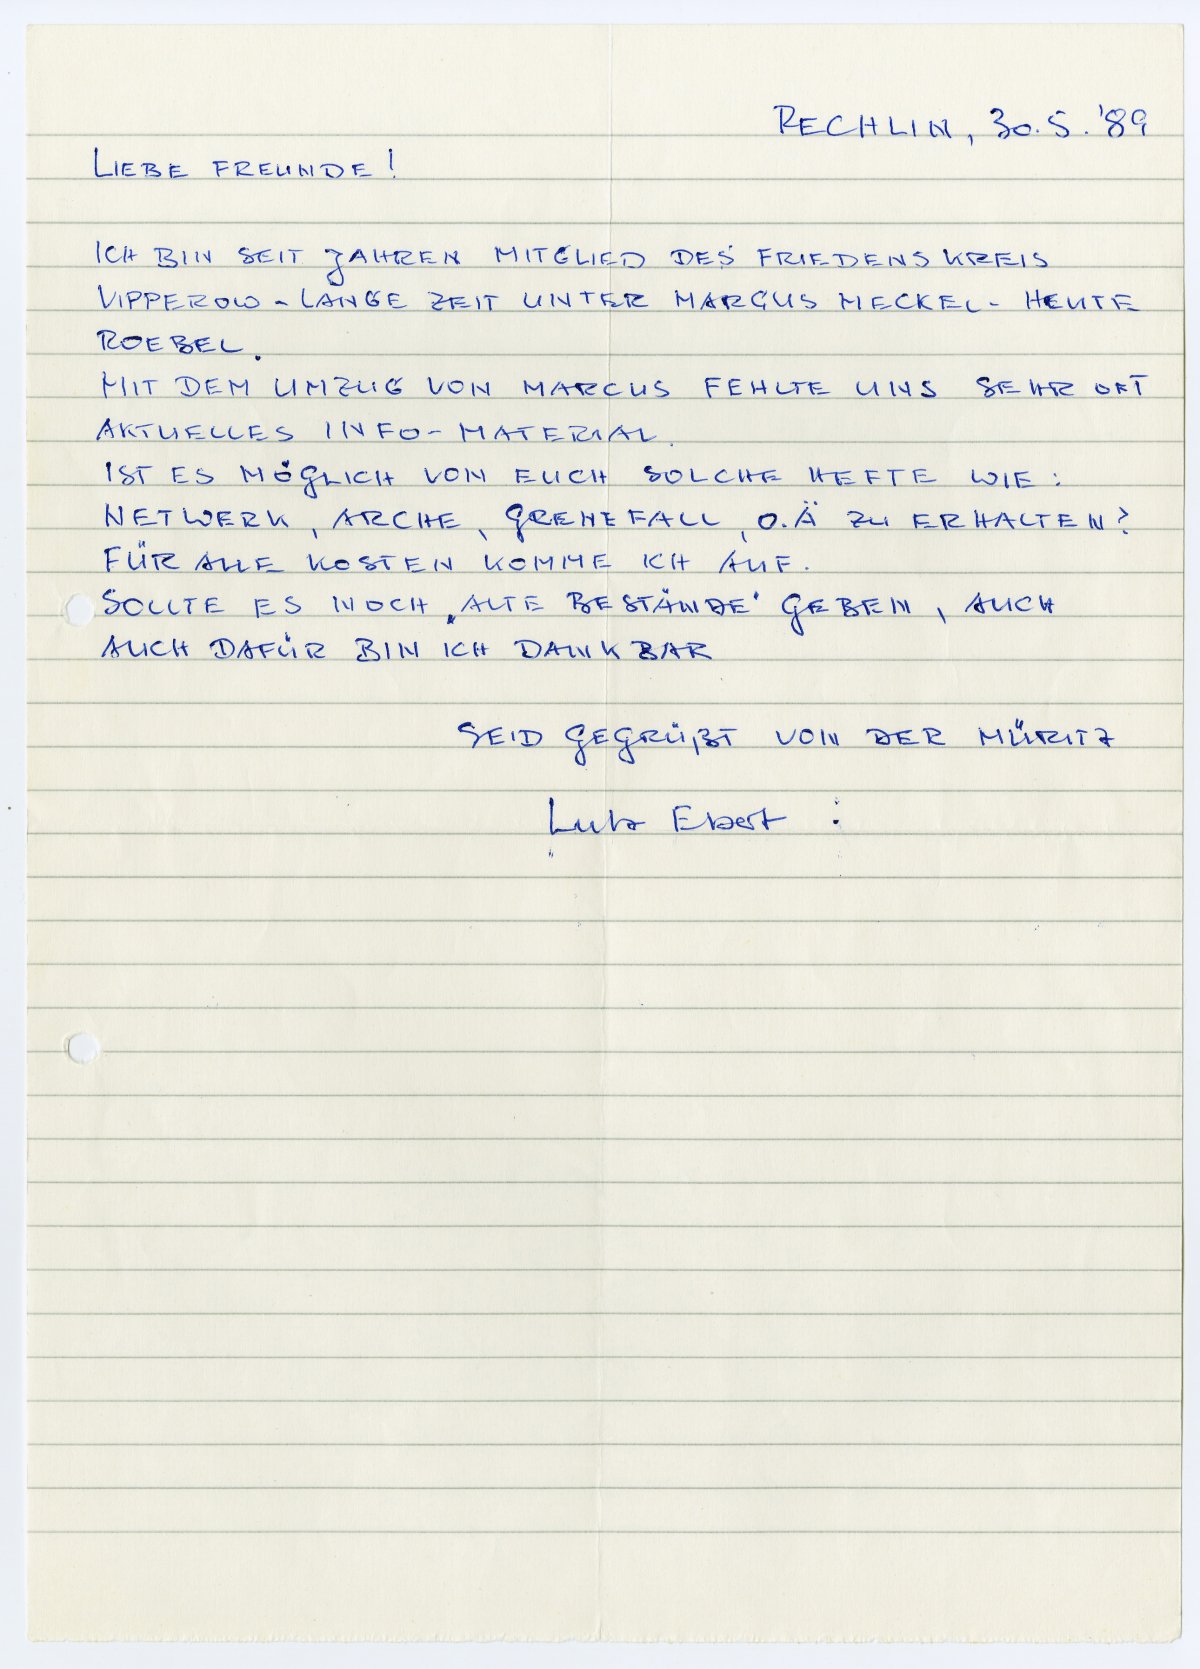 RECHLIN, 30.5.'89
LIEBE FREUNDE!
ICH BIN SEIT JAHREN MITGLIED DES FRIEDENSKREIS
VIPPEROW - LANGE ZEIT UNTER MARCUS MECKEL - HEUTE
ROEBEL.
MIT DEM UMZUG VON MARCUS FEHLTE UNS SEHR OFT
AKTUELLES INFO-MATERIAL.
IST ES MÖGLICH VON EUCH SOLCHE HEFTE WIE:
NETWERK, ARCHE, GRENEFALL, O.Ä ZU ERHALTEN?
FÜR ALLE KOSTEN KOMME ICH AUF.
SOLLTE ES NOCH „ALTE BESTÄNDE" GEBEN, AUCH
AUCH DAFÜR BIN ICH DANKBAR
SEID GEGRÜßT VON DER MÜRITZ
Lutz Ebert